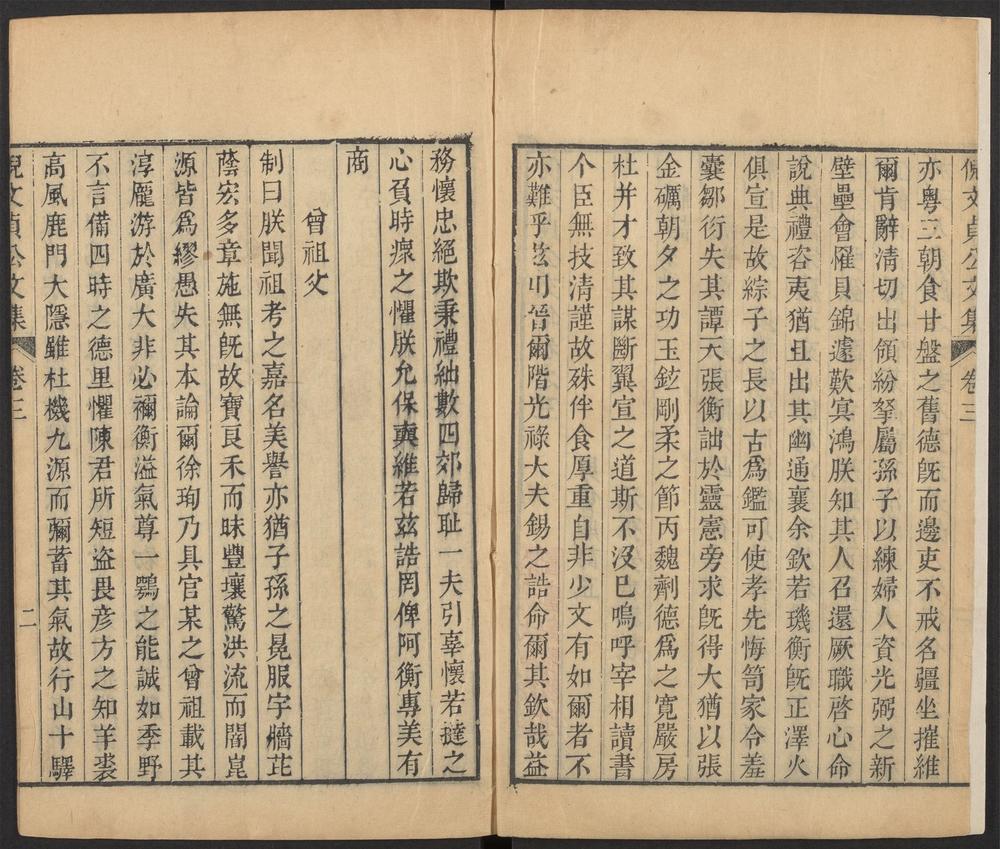 倪文貞公文集 卷三
亦粤三朝食甘盤之舊德既而邊吏不戒名疆坐摧維
爾肯辭清切出領紛拏屬孫子以練婦人資光弼之新
壁壘會罹貝錦遽歎冥鴻朕知其人召還厥職啓心命
說典禮咨夷猶且出其幽通襄余欽若璣衡既正澤火
俱宣是故綜子之長以古爲鑑可使孝先悔笥家令羞
囊鄒衍失其譚天張衡詘於靈憲旁求既得大猶以張
金礪朝夕之功玉鉉剛柔之節丙魏劑德爲之寛嚴房
杜并才致其謀斷翼宣之道斯不沒已嗚呼宰相讀書
个臣無技清謹故殊伴食厚重自非少文有如爾者不
亦難乎玆用晉爾階光祿大夫錫之誥命爾其欽哉益
務懷忠絕欺秉禮紬數四郊歸耻一夫引辜懷若撻之
心負時瘝之懼朕允保奭維若玆誥罔俾阿衡專美有
商
曾祖父
制曰朕聞祖考之嘉名美譽亦猶子孫之冕服宇牆芘
蔭宏多章施無既故寶良禾而昧豐壤驚洪流而闇崑
源皆爲繆愚失其本論爾徐珣乃具官某之曾祖載其
淳龐游於廣大非必禰衡溢氣尊一鶚之能誠如季野
不言備四時之德里懼陳君所短盜畏彦方之知羊裘
高風鹿門大隱雖杜機九源而彌蓄其氣故行山十驛
倪文貞公文集 卷三 二